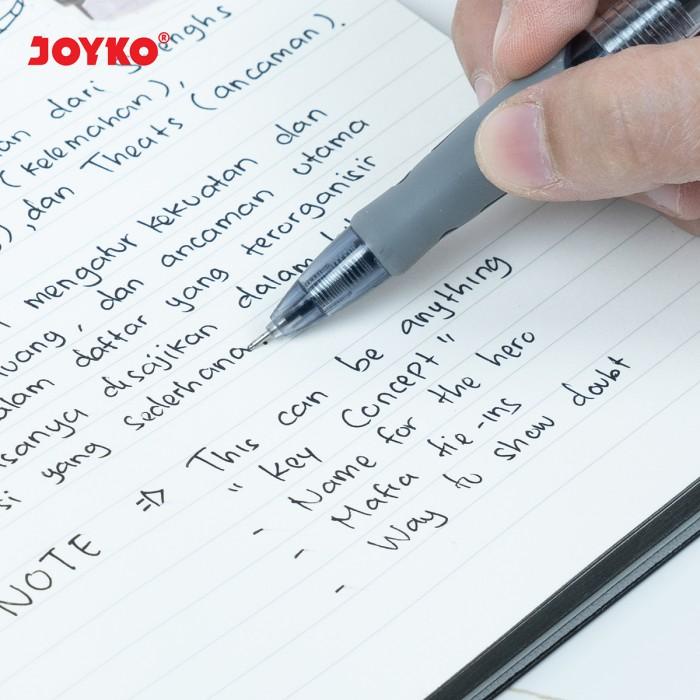 JOYKO®
dari
(kelemahan),
, dan Theats (ancaman).
mengatur kekuatan dan
, dan ancaman utama
daftar yang terorganisir
disajikan dalam
yang sederhana
NOTE => This can be anything
"Key Concept"
- Name for the hero
- Mafia tie-ins
- Way to show doubt